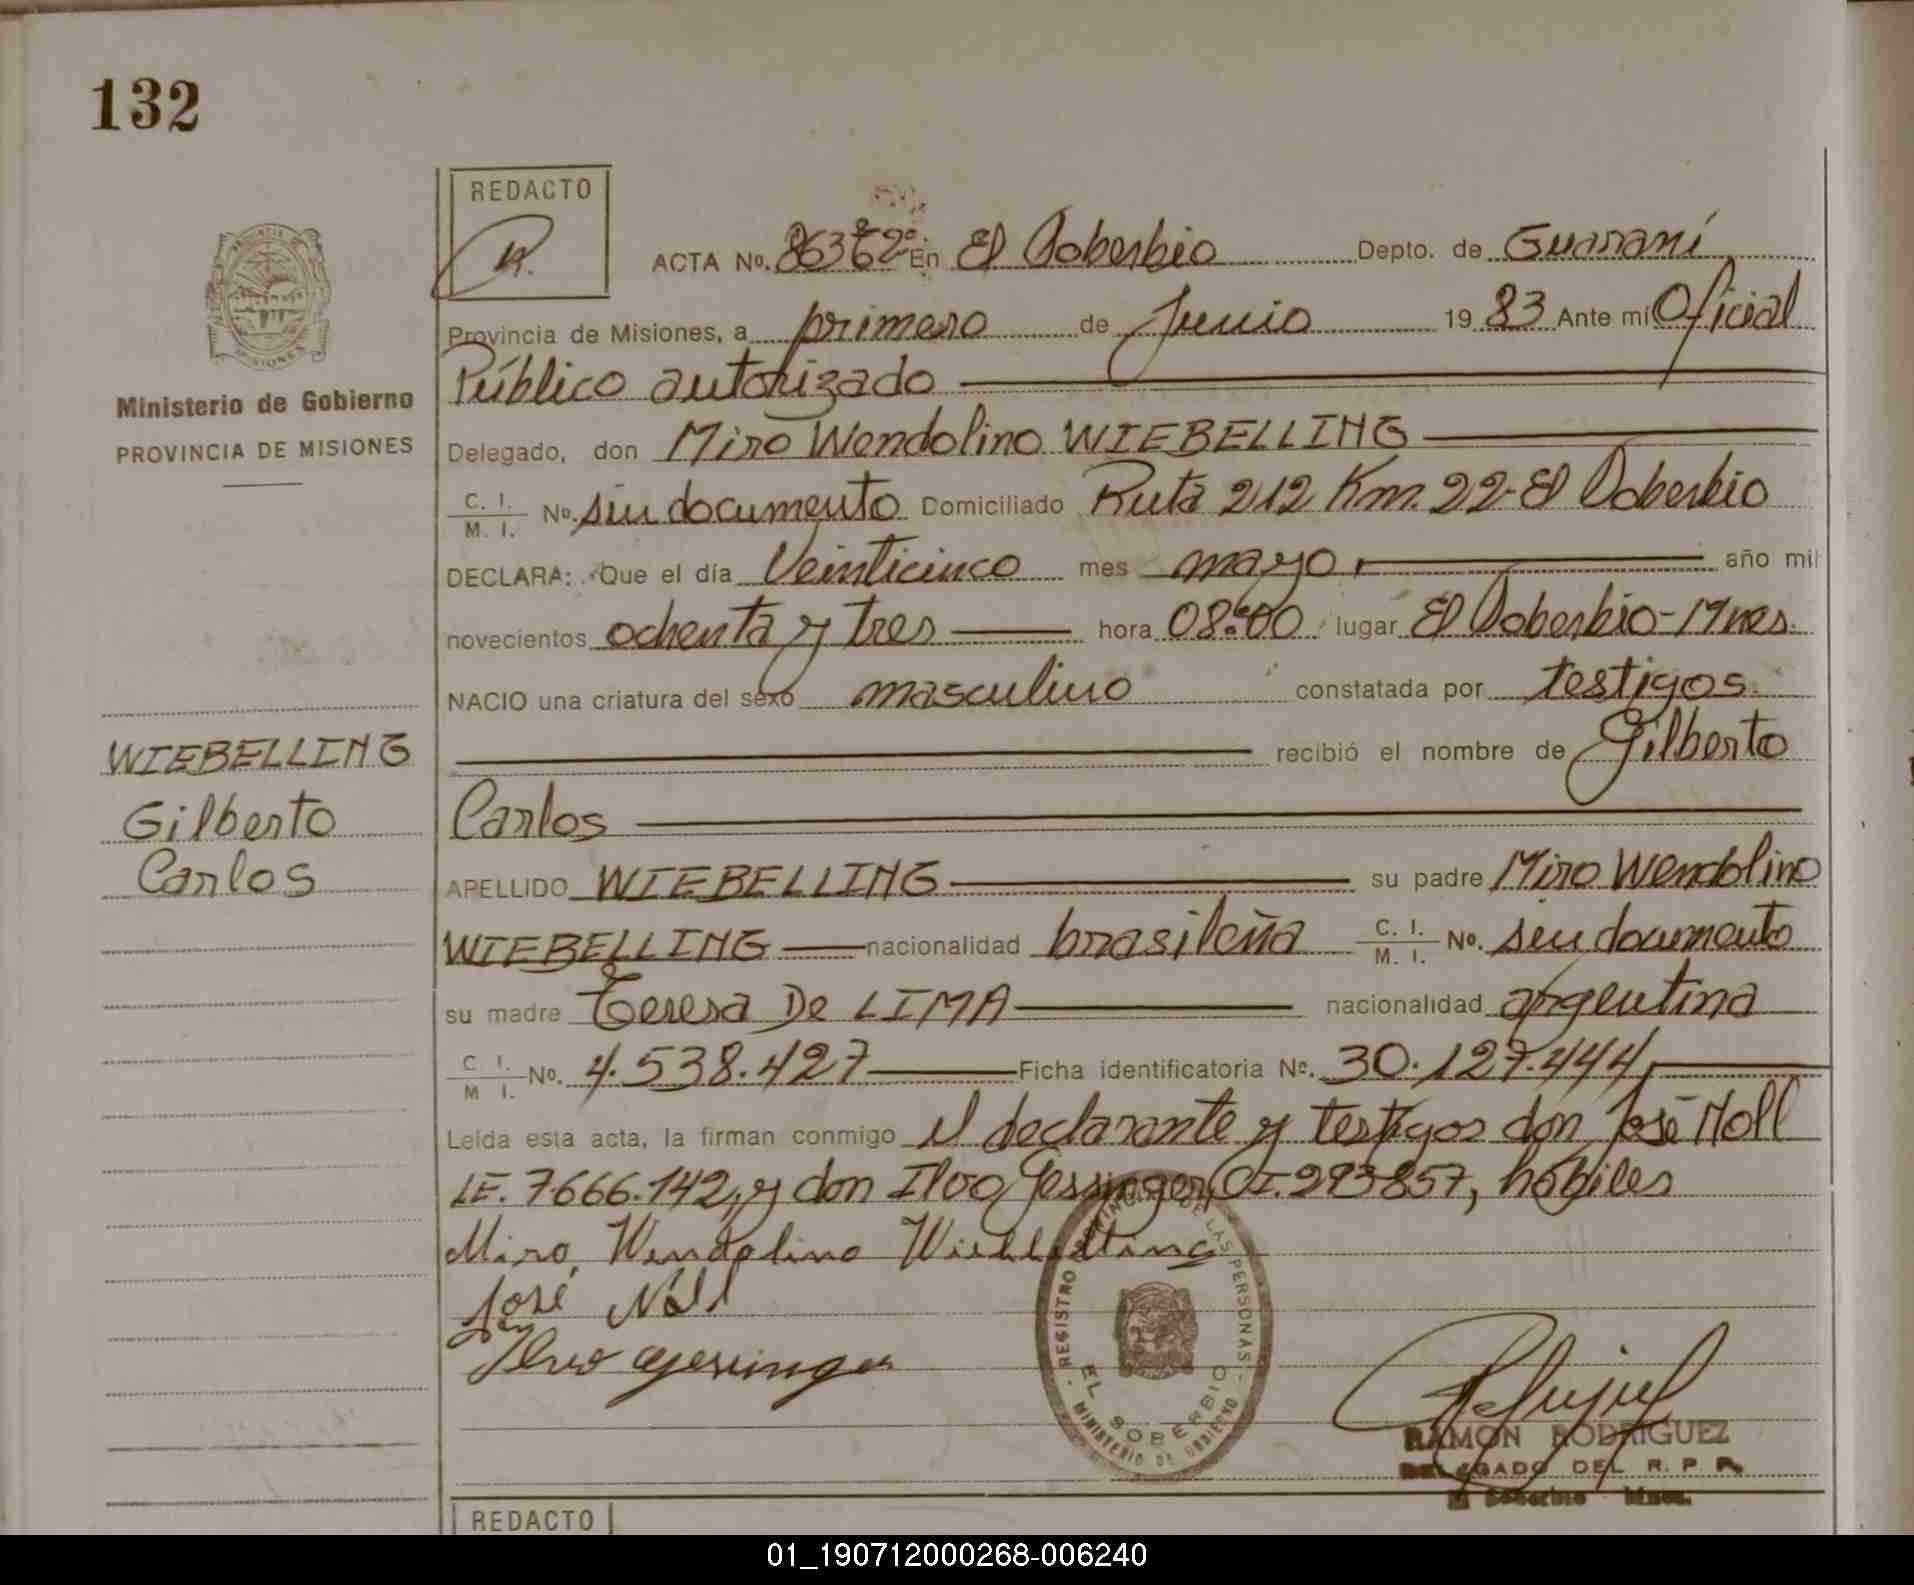 132
REDACTO
PROVINCIA DE
MISIONES
Ministerio de Gobierno
PROVINCIA DE MISIONES
ACTA Nº. En El Soberbio Depto. de Guaraní
Provincia de Misiones, a primero de Junio 1983 Ante mí Oficial
Público autorizado
Delegado, don Miro Wendolino WIEBELLING
C. I. / M. I. Nº. sin documento Domiciliado Ruta 212 Km. 22-El Soberbio
DECLARA: Que el día Veinticinco mes mayo año mil
novecientos ochenta y tres hora 08:00 lugar El Soberbio-Mnes.
NACIO una criatura del sexo masculino constatada por testigos
recibió el nombre de Gilberto
Carlos
WIEBELLING
Gilberto
Carlos
APELLIDO WIEBELLING su padre Miro Wendolino
WIEBELLING nacionalidad brasileña C. I. / M. I. Nº. sin documento
su madre Teresa De LIMA nacionalidad argentina
C. I. / M. I. Nº. 4.538.427 Ficha identificatoria Nº. 30.127.444
Leída esta acta, la firman conmigo el declarante y testigos don José Noll
LE. 7.666.142, y don Ilvo Gessinger, CI. 293857, hábiles
Miro Wendolino Wiebelling
José Noll
Ilvo Gessinger
REGISTRO PROVINCIAL DE LAS PERSONAS
EL SOBERBIO
MINISTERIO DE GOBIERNO
RAMON RODRIGUEZ
DELEGADO DEL R. P. P.
El Soberbio Mnes.
REDACTO
01_190712000268-006240